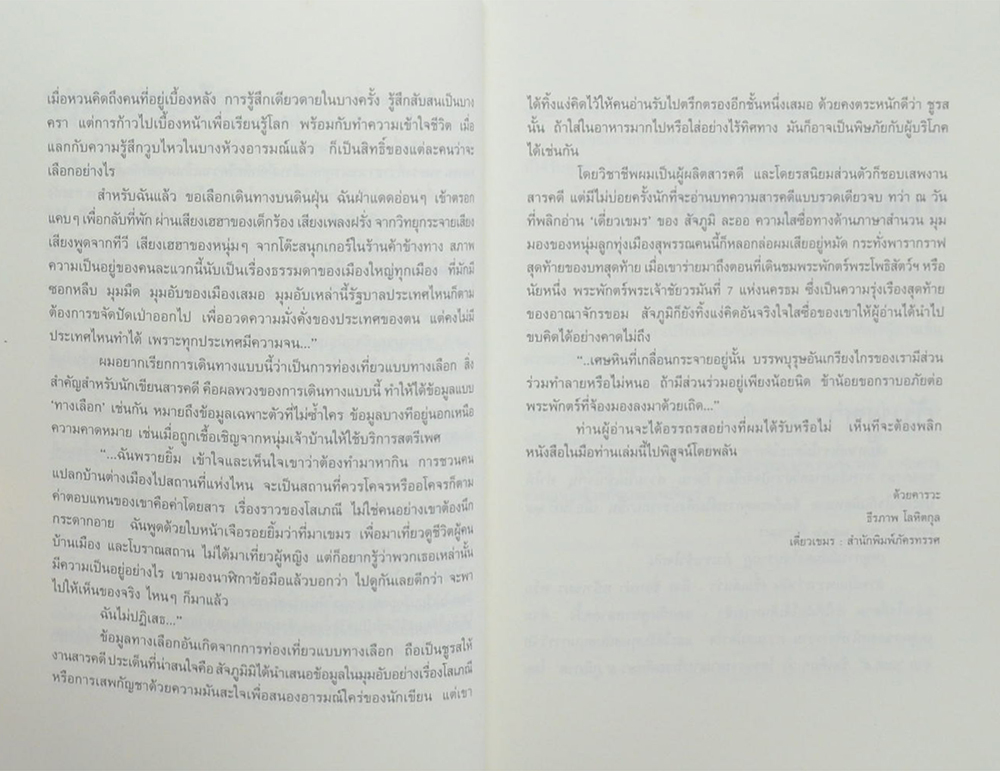 เมื่อหวนคิดถึงคนที่อยู่เบื้องหลัง การรู้สึกเดียวดายในบางครั้ง รู้สึกสับสนเป็นบาง
ครา แต่การก้าวไปเบื้องหน้าเพื่อเรียนรู้โลก พร้อมกับทำความเข้าใจชีวิต เมื่อ
แลกกับความรู้สึกวูบไหวในบางห้วงอารมณ์แล้ว ก็เป็นสิทธิ์ของแต่ละคนว่าจะ
เลือกอย่างไร
สำหรับฉันแล้ว ขอเลือกเดินทางบนดินฝุ่น ฉันฝ่าแดดอ่อนๆ เข้าตรอก
แคบๆ เพื่อกลับที่พัก ผ่านเสียงเฮฮาของเด็กร้อง เสียงเพลงฝรั่ง จากวิทยุกระจายเสียง
เสียงพูดจากทีวี เสียงเฮฮาของหนุ่มๆ จากโต๊ะสนุกเกอร์ในร้านค้าข้างทาง สภาพ
ความเป็นอยู่ของคนละแวกนี้นับเป็นเรื่องธรรมดาของเมืองใหญ่ทุกเมือง ที่มักมี
ซอกหลืบ มุมมืด มุมอับของเมืองเสมอ มุมอับเหล่านี้รัฐบาลประเทศไหนก็ตาม
ต้องการขจัดปัดเป่าออกไป เพื่ออวดความมั่งคั่งของประเทศของตน แต่คงไม่มี
ประเทศไหนทำได้ เพราะทุกประเทศมีความจน..."
ผมอยากเรียกการเดินทางแบบนี้ว่าเป็นการท่องเที่ยวแบบทางเลือก สิ่ง
สำคัญสำหรับนักเขียนสารคดี คือผลพวงของการเดินทางแบบนี้ ทำให้ได้ข้อมูลแบบ
'ทางเลือก' เช่นกัน หมายถึงข้อมูลเฉพาะตัวที่ไม่ซ้ำใคร ข้อมูลบางทีอยู่นอกเหนือ
ความคาดหมาย เช่นเมื่อถูกเชื้อเชิญจากหนุ่มเจ้าบ้านให้ใช้บริการสตรีเพศ
"...ฉันพรายยิ้ม เข้าใจและเห็นใจเขาว่าต้องทำมาหากิน การชวนคน
แปลกบ้านต่างเมืองไปสถานที่แห่งไหน จะเป็นสถานที่ควรโคจรหรืออโคจรก็ตาม
ค่าตอบแทนของเขาคือค่าโดยสาร เรื่องราวของโสเภณี ไม่ใช่คนอย่างเขาต้องนึก
กระดากอาย ฉันพูดด้วยใบหน้าเจือรอยยิ้มว่าที่มาเขมร เพื่อมาเที่ยวดูชีวิตผู้คน
บ้านเมือง และโบราณสถาน ไม่ได้มาเที่ยวผู้หญิง แต่ก็อยากรู้ว่าพวกเธอเหล่านั้น
มีความเป็นอยู่อย่างไร เขามองนาฬิกาข้อมือแล้วบอกว่า ไปดูกันเลยดีกว่า จะพา
ไปให้เห็นของจริง ไหนๆ ก็มาแล้ว
ฉันไม่ปฏิเสธ..."
ข้อมูลทางเลือกอันเกิดจากการท่องเที่ยวแบบทางเลือก ถือเป็นชูรสให้
งานสารคดี ประเด็นที่น่าสนใจคือ สัจภูมิมิได้นำเสนอข้อมูลในมุมอับอย่างเรื่องโสเภณี
หรือการเสพกัญชาด้วยความมันสะใจเพื่อสนองอารมณ์ใคร่ของนักเขียน แต่เขา
ได้ทิ้งแง่คิดไว้ให้คนอ่านรับไปตรึกตรองอีกชั้นหนึ่งเสมอ ด้วยคงตระหนักดีว่า ชูรส
นั้น ถ้าใส่ในอาหารมากไปหรือใส่อย่างไร้ทิศทาง มันก็อาจเป็นพิษภัยกับผู้บริโภค
ได้เช่นกัน
โดยวิชาชีพผมเป็นผู้ผลิตสารคดี และโดยรสนิยมส่วนตัวก็ชอบเสพงาน
สารคดี แต่มีไม่บ่อยครั้งนักที่จะอ่านบทความสารคดีแบบรวดเดียวจบ ทว่า ณ วัน
ที่พลิกอ่าน 'เดี่ยวเขมร' ของ สัจภูมิ ละออ ความใสซื่อทางด้านภาษาสำนวน มุม
มองของหนุ่มลูกทุ่งเมืองสุพรรณคนนี้ก็หลอกล่อผมเสียอยู่หมัด กระทั่งพารากราฟ
สุดท้ายของบทสุดท้าย เมื่อเขาร่ายมาถึงตอนที่เดินชมพระพักตร์พระโพธิสัตว์ฯ หรือ
นัยหนึ่ง พระพักตร์พระเจ้าชัยวรมันที่ 7 แห่งนครธม ซึ่งเป็นความรุ่งเรืองสุดท้าย
ของอาณาจักรขอม สัจภูมิก็ยังทิ้งแง่คิดอันจริงใจใสซื่อของเขาให้ผู้อ่านได้นำไป
ขบคิดได้อย่างคาดไม่ถึง
"..เศษหินที่เกลื่อนกระจายอยู่นั้น บรรพบุรุษอันเกรียงไกรของเรามีส่วน
ร่วมทำลายหรือไม่หนอ ถ้ามีส่วนร่วมอยู่เพียงน้อยนิด ข้าน้อยขอกราบอภัยต่อ
พระพักตร์ที่จ้องมองลงมาด้วยเถิด..."
ท่านผู้อ่านจะได้อรรถรสอย่างที่ผมได้รับหรือไม่ เห็นทีจะต้องพลิก
หนังสือในมือท่านเล่มนี้ไปพิสูจน์โดยพลัน
ด้วยคารวะ
ธีรภาพ โลหิตกุล
เดี่ยวเขมร : สำนักพิมพ์ภัครทรรศ